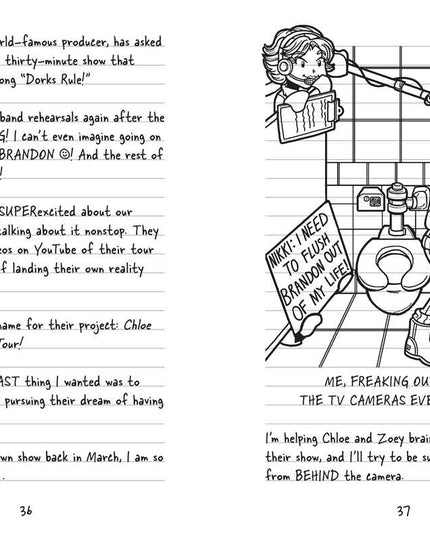 rld-famous producer, has asked
thirty-minute show that
ong “Dorks Rule!”
band rehearsals again after the
G! I can’t even imagine going on
BRANDON ☺! And the rest of
!
SUPERexcited about our
talking about it nonstop. They
eos on YouTube of their tour
f landing their own reality
name for their project: Chloe
Tour!
AST thing I wanted was to
pursuing their dream of having
wn show back in March, I am so
.
36
NIKKI: I NEED
TO FLUSH
BRANDON OUT
OF MY LIFE!
ME, FREAKING OU
THE TV CAMERAS EVE
I’m helping Chloe and Zoey brai
their show, and I’ll try to be su
from BEHIND the camera.
37